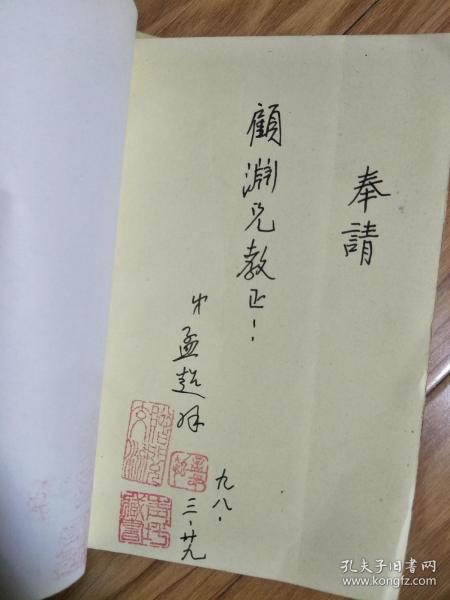 奉請
顧淵兄教正！
弟孟超
九八.
三.廿九
藏書
孔夫子旧书网
www.kongfz.com